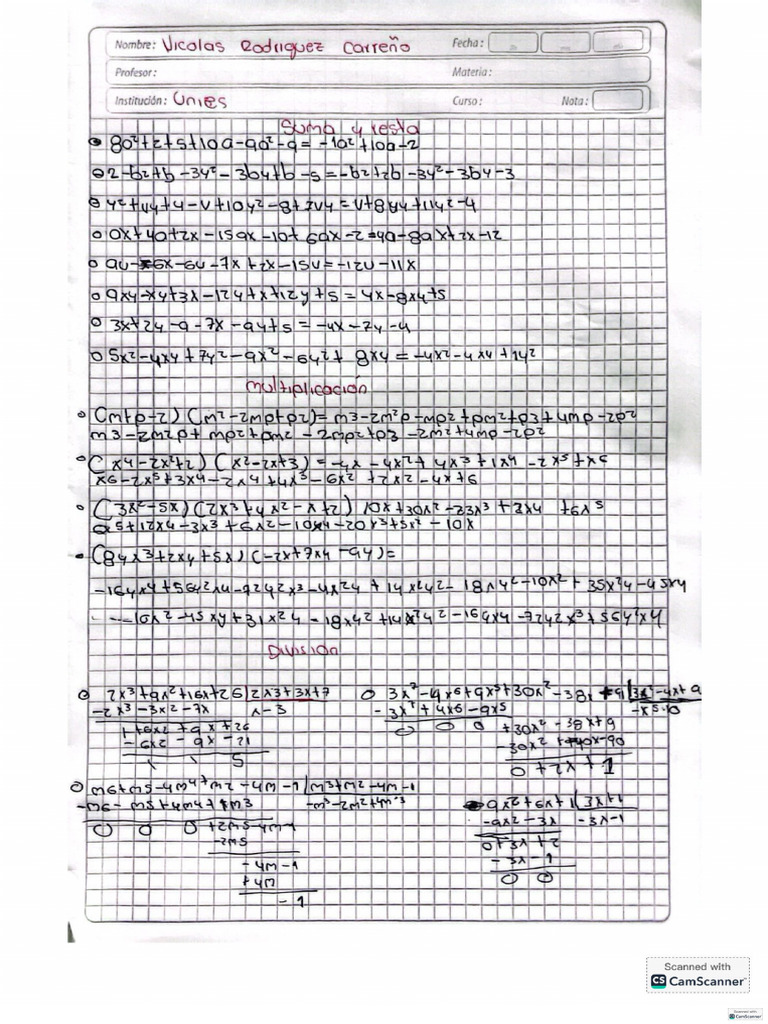 Nombre: Vicolas Rodriguez Carreño Fecha:
Profesor: Materia:
Institución: Unies Curso: Nota:
Suma y resta
8a²+2+5+10a-9a²-9= -1a²+10a-2
2-b2+b-3y²-3by+b-5=-b2+2b-3y²-3by-3
y²+vy+4-v+10y²-8+7vy=v+8vy+11y²-4
ax+4a+2x-15ax-10+6ax-2=4a-8ax+2x-12
9u-6x-6u-7x+2x-15u=-12u-11x
9xy-xy+3x-12y+x+12y+5=4x-8xy+5
3x+2y-9-7x-9y+5=-4x-7y-4
5x²-4xy+7y²-9x²-6y²+8xy=-4x2-4xy+1y²
Multiplicación
(m+p-2)(m²-2mp+p2)=m3-2m²p-mp2+pm2+p3+4mp-2p2
m3-2m2p+mp2+pm2-2mp2+p3-2m2+4mp-2p2
(x4-2x²+2)(x²-2x+3)=-4x-4x²+4x3+1x4-2x5+x6
x6-2x5+3x4-2x4+4x3-6x2+2x2-4x+6
(3x²-5x)(2x3+4x2-x+2) 10x+30x²-23x3+2x4+6x5
6x5+12x4-3x3+6x2-10x4-20x3+5x²-10x
(8yx3+2xy+5x)(-2x+7xy-9y)=
-16yx4+56y2x4-72y2x3-4x2y+14x2y2-18xy2-10x2+35x²y-45xy
-10x2-45xy+31x2y-18xy2+14x²y2-16yx4-72y2x3+56y²x4
División
2x3+9x²+16x+26 2x3+3x+7 3x²-4x6+9x5+30x²-38x+9 3x²-4x+9
-2x3-3x2-7x x-3 -3x²+4x6-9x5 -x5-10
+6x2+9x+26 0 0 0 +30x²-38x+9
-6x2-9x-21 -30x2+40x-90
5 0+2x+1
m6+m5-4m4+m2-4m-1 m3+m2-4m-1 9x2+6x+1 3x+1
-m6-m5+4m4+1m3 -m3-2m2+4m-3 -9x2-3x -3x-1
0 0 0 +2m5-4m-1 0+3x+2
-2m5 -3x-1
-4m-1 0 0
+4m
-1
Scanned with
CS CamScanner